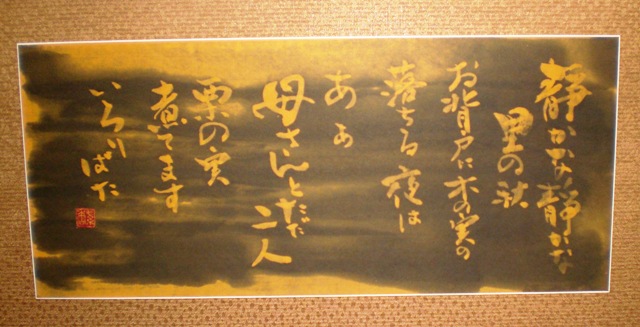 静かな静かな
里の秋
お背戸に木の実の
落ちる夜は
あぁ
母さんとただ二人
栗の実
煮てます
いろりばた